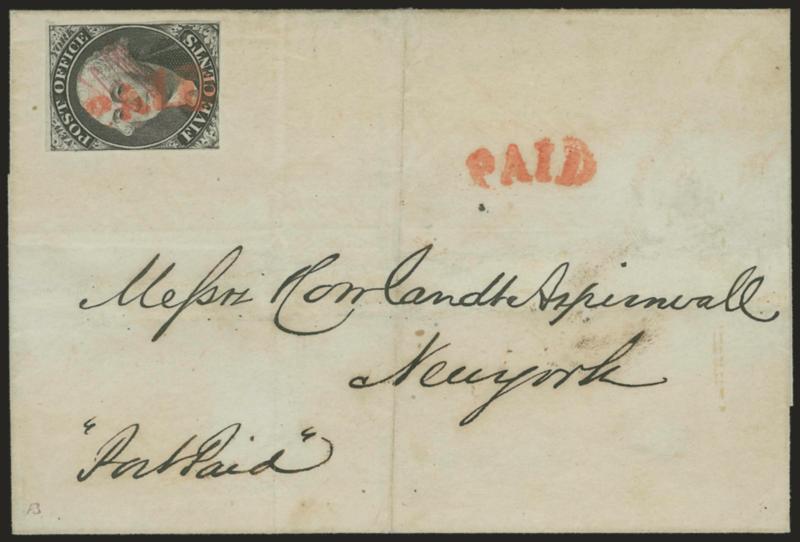 POST OFFICE
FIVE CENTS
PAID
Messrs Howland & Aspinwall
New york
"Post Paid"